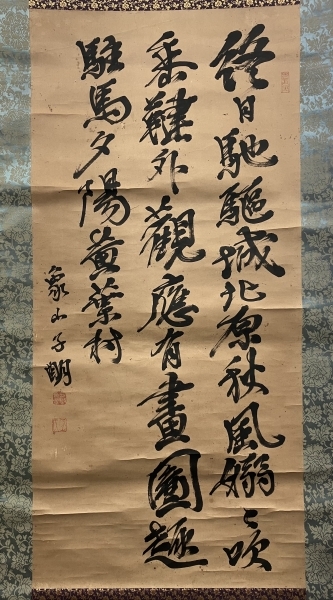 終日馳驅城北原秋風嫋〻吹
垂鞭外觀應有畫圖趣
駐馬夕陽黄葉村
象山子明